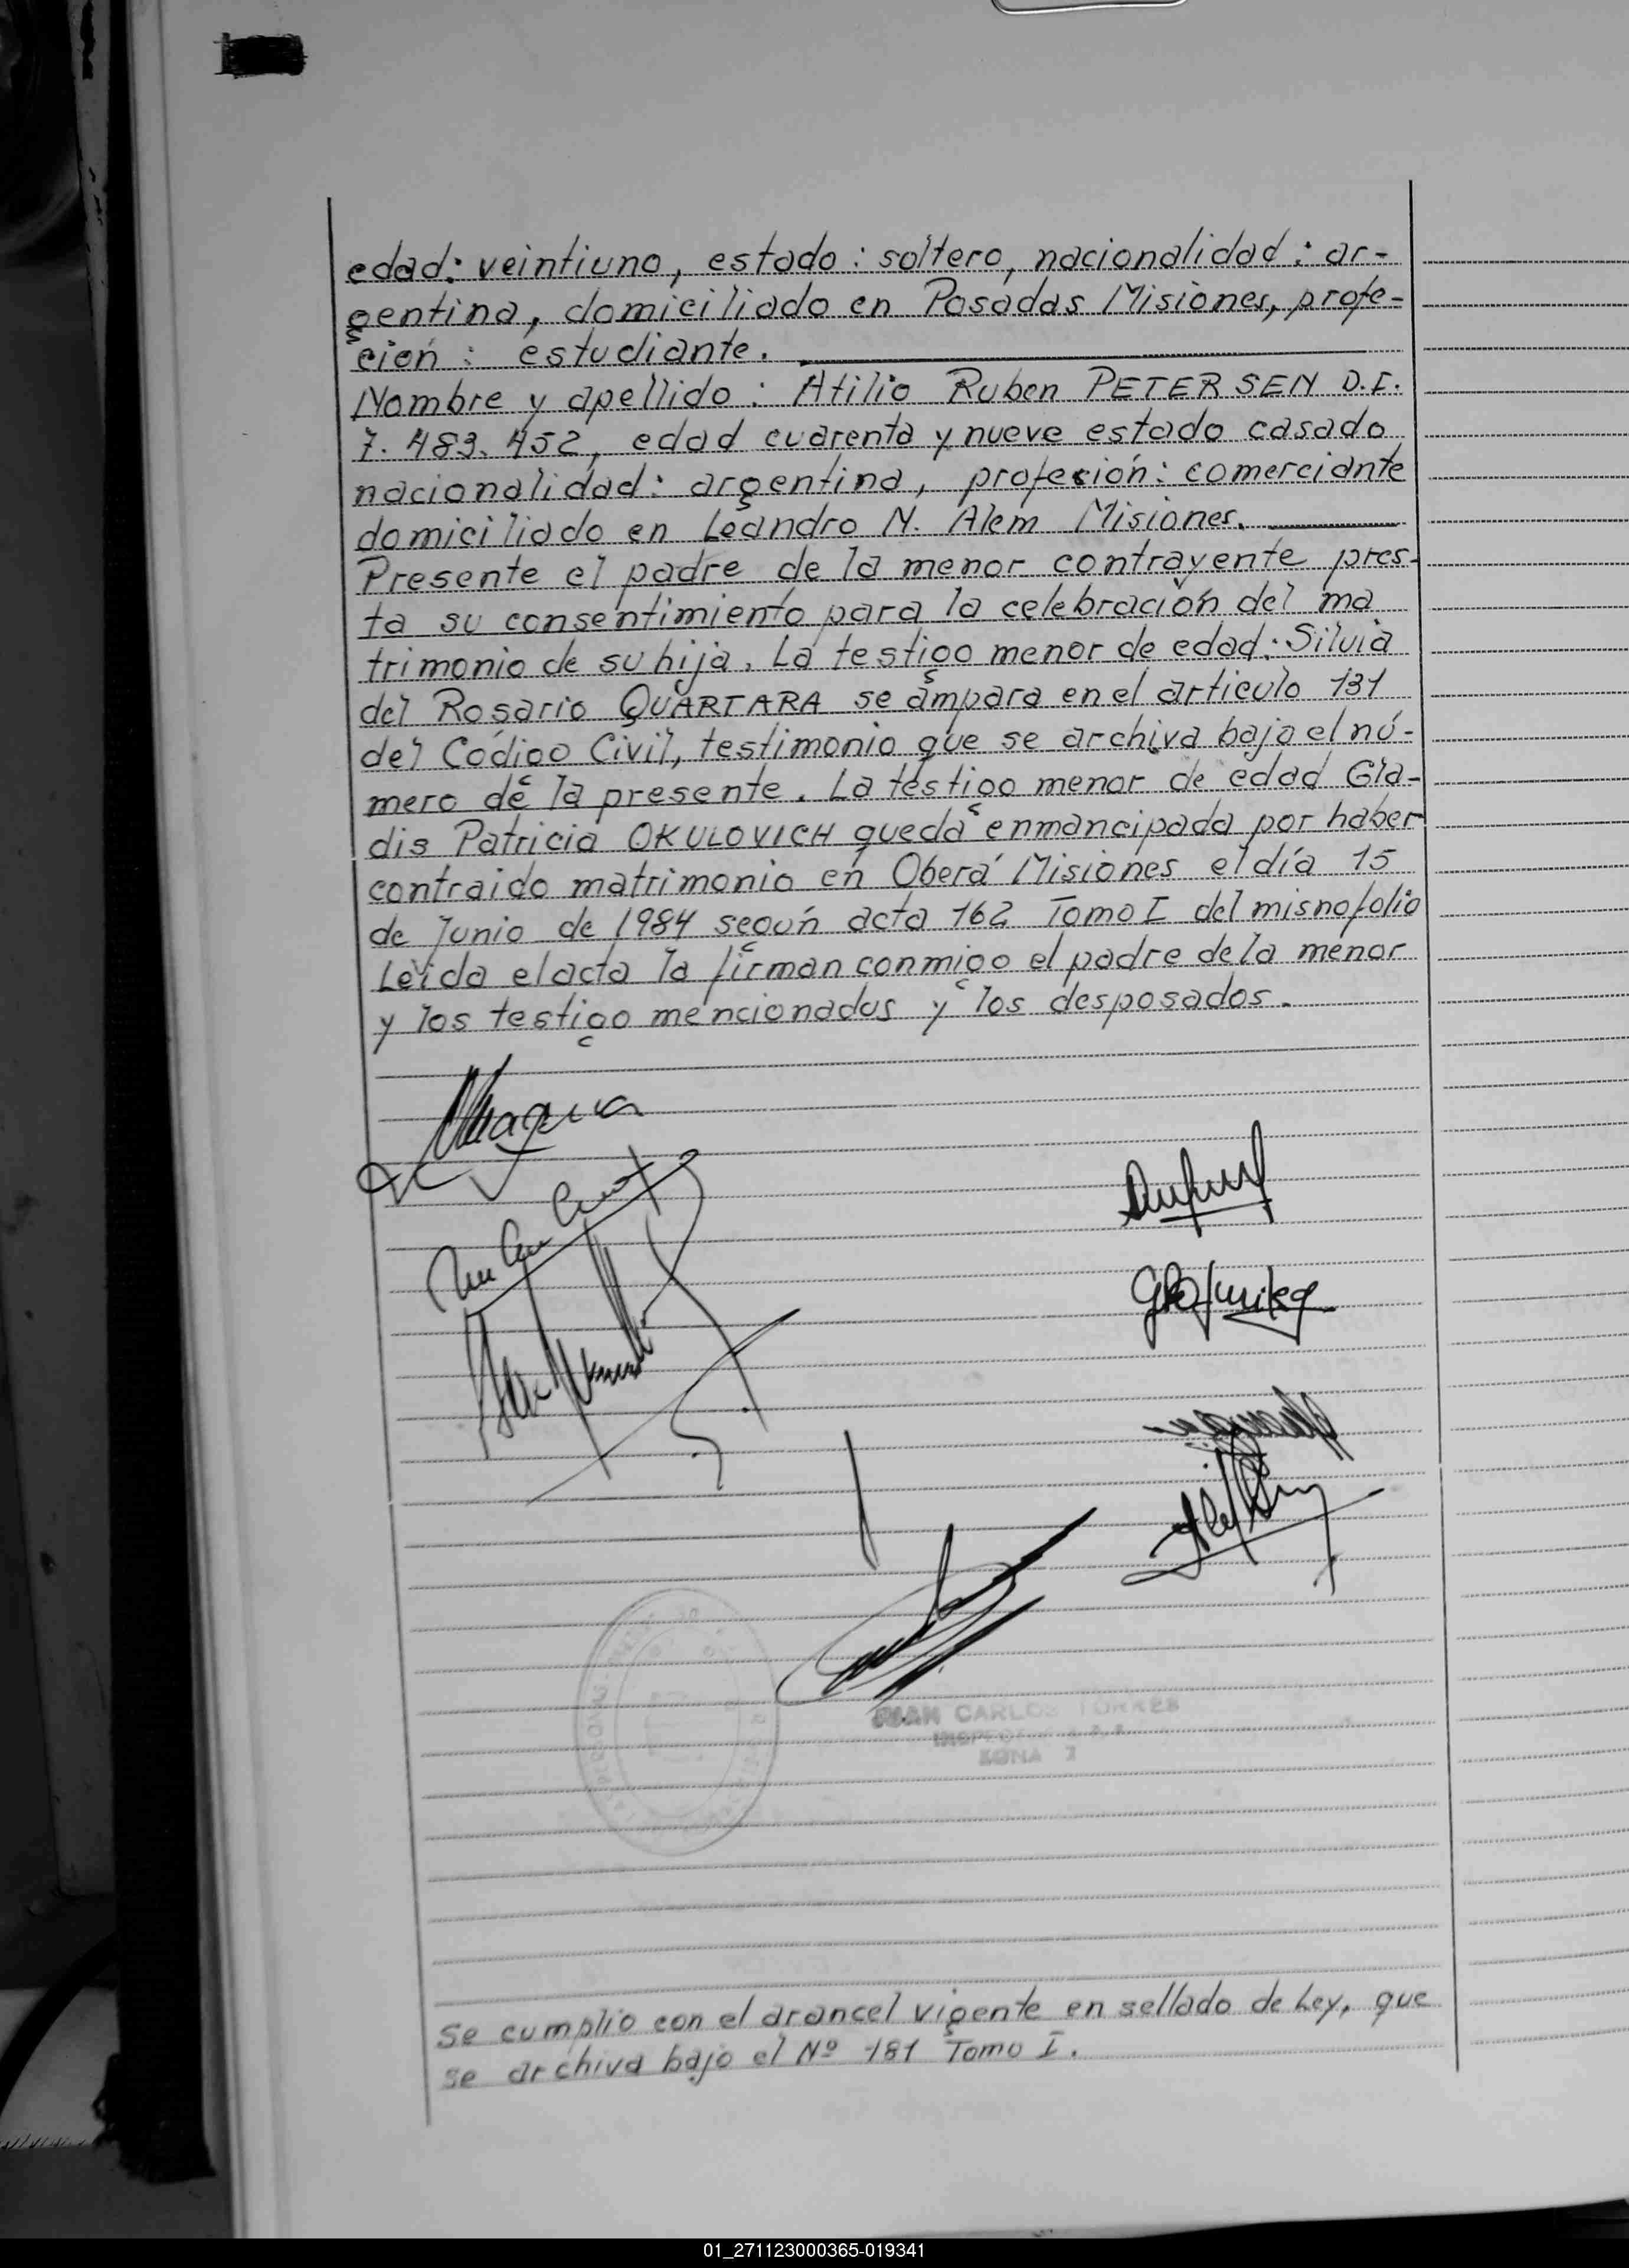 edad: veintiuno, estado: soltero, nacionalidad: ar-
gentina, domiciliado en Posadas Misiones, profe-
cion: estudiante.
Nombre y apellido: Atilio Ruben PETERSEN D.I.
7.483.452, edad cuarenta y nueve estado casado,
nacionalidad: argentina, profesión: comerciante
domiciliado en Leandro N. Alem Misiones.
Presente el padre de la menor contrayente pres-
ta su consentimiento para la celebración del ma
trimonio de su hija. La testigo menor de edad: Silvia
del Rosario QUARTARA se ampara en el articulo 131
del Código Civil, testimonio que se archiva bajo el nú-
mero de la presente. La testigo menor de edad Gla-
dis Patricia OKULOVICH queda enmancipada por haber
contraido matrimonio en Oberá Misiones el día 15
de Junio de 1984 según acta 162 Tomo I del misnofolio
Leida el acta la firman conmigo el padre de la menor
y los testigo mencionados y los desposados.
JUAN CARLOS TORRES
ZONA
Se cumplio con el arancel vigente en sellado de Ley, que
se archiva bajo el Nº 181 Tomo I.
01_271123000365-019341